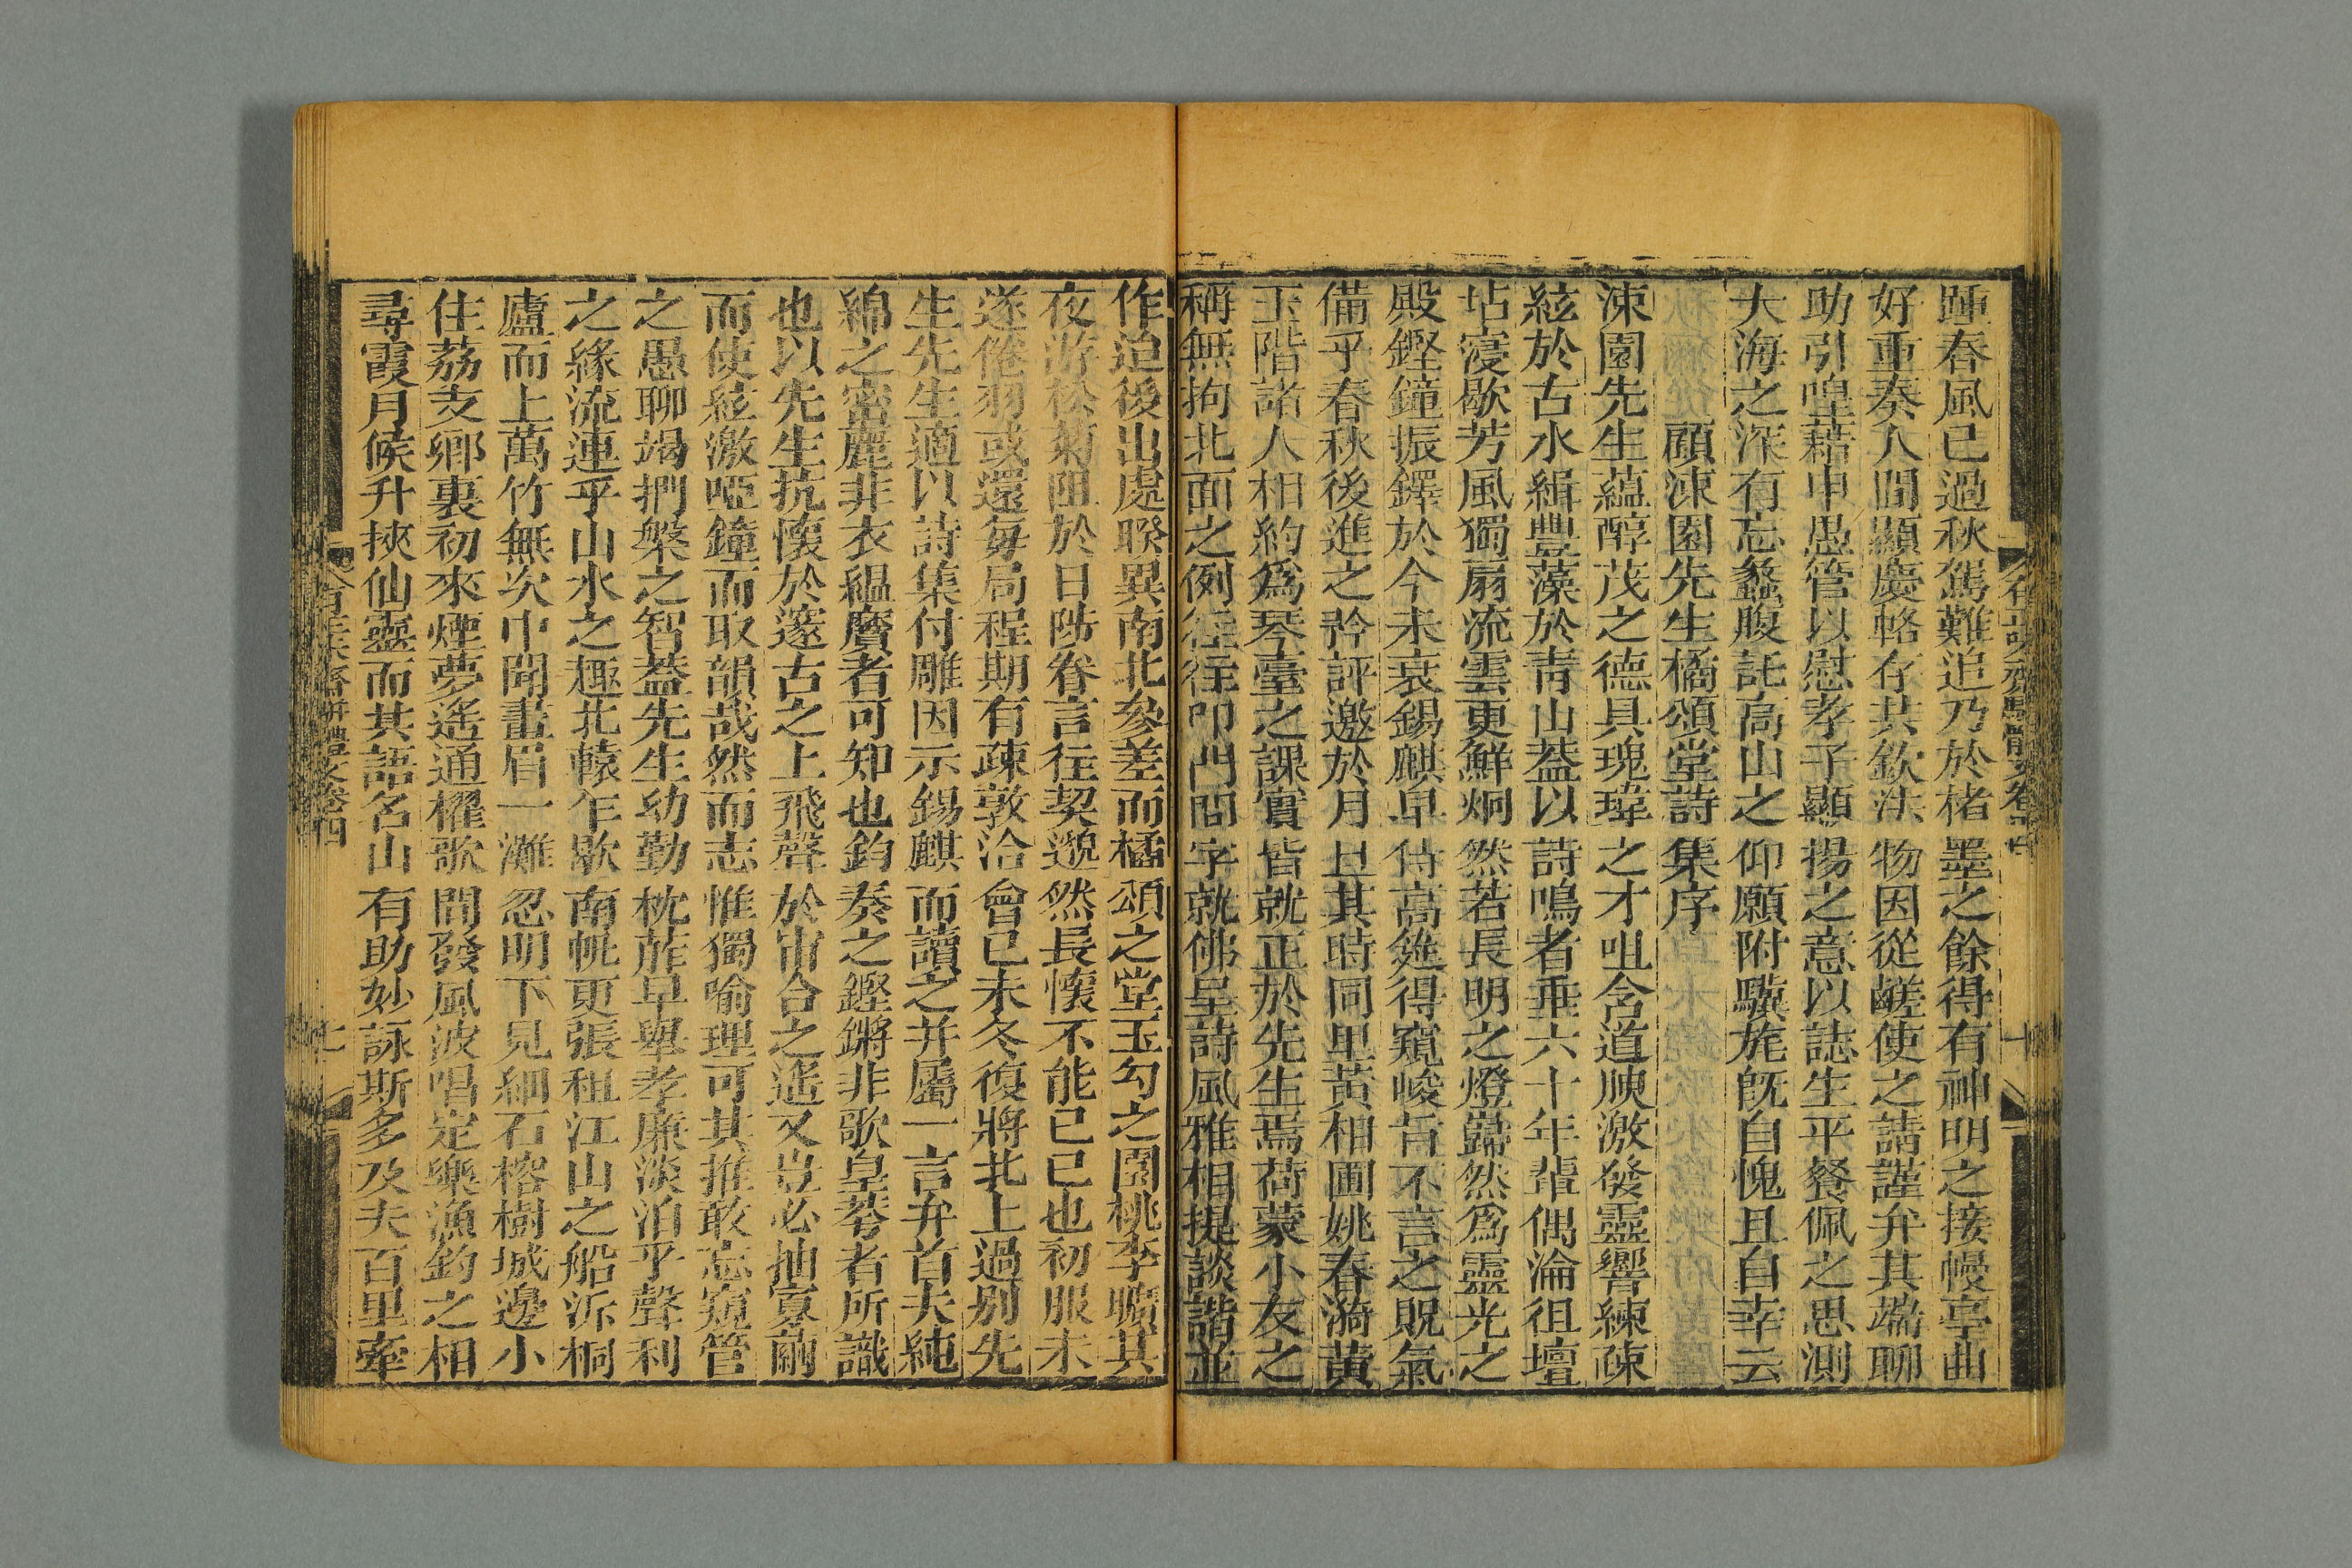 踵春風已過秋駕難追乃於楮墨之餘得有神明之接幔亭曲
好重奏人間顯慶輅存共欽法物因從鹺使之請謹弁其耑聊
助引喤藉申愚管以慰孝子顯揚之意以誌生平餐佩之思測
大海之深有忘蠡腹託高山之仰願附驥旄旣自愧且自幸云
顧涑園先生橘頌堂詩集序
涑園先生蘊醇茂之德具瑰瑋之才咀含道腴激發靈響練陳
絃於古水緝豐藻於青山蓋以詩鳴者垂六十年輩偶淪徂壇
坫寖歇芳風獨扇流雲更鮮炯然若長明之燈巋然爲靈光之
殿鏗鐘振鐸於今未衰錫麒早侍高筵得窺峻旨不言之貺氣
備乎春秋後進之矜評邀於月旦其時同里黃相圃姚春漪黃
玉階諸人相約爲琴臺之課實皆就正於先生焉荷蒙小友之
稱無拘北面之例往往叩門問字就佛呈詩風雅相提談諧並
作迨後出處暌異南北參差而橘頌之堂玉勾之園桃李曠其
夜游松菊阻於日陟眷言往契邈然長懷不能已已也初服未
遂倦羽或還每局程期有疎敦洽曾己未冬復將北上過別先
生先生適以詩集付雕因示錫麒而讀之并屬一言弁首夫純
綿之密麗非衣縕黂者可知也鈞奏之鏗鏘非歌皇荂者所識
也以先生抗懷於邃古之上飛聲於宙合之遙又豈必抽寡繭
而使絃激啞鐘而取韻哉然而志惟獨喻理可其推敢忘窺管
之愚聊竭捫槃之智蓋先生幼勤枕葄早舉孝廉淡泊乎聲利
之緣流連乎山水之趣北轅乍歇南帆更張租江山之船泝桐
廬而上萬竹無次中聞畫眉一灘忽明下見細石榕樹城邊小
住荔支鄉裏初來煙夢遙通櫂歌間發風波唱定樂漁釣之相
尋霞月候升挾仙靈而共語名山有助妙詠斯多及夫百里牽